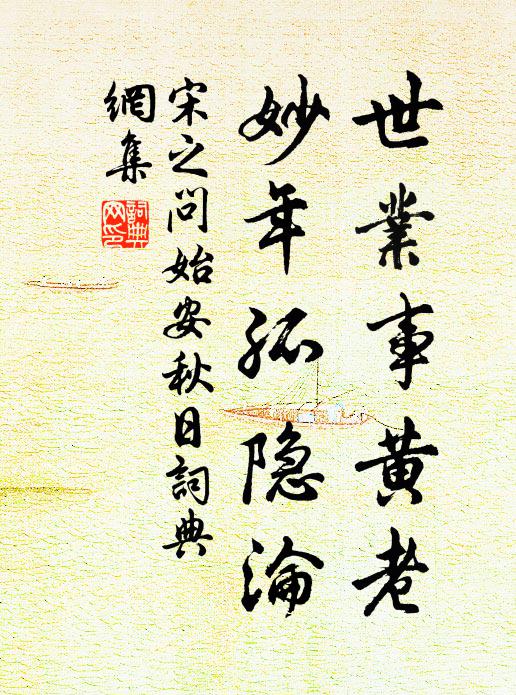 世業事黄老
妙年孤隐淪
宋之问始安秋日詞典
網集
詞典网印